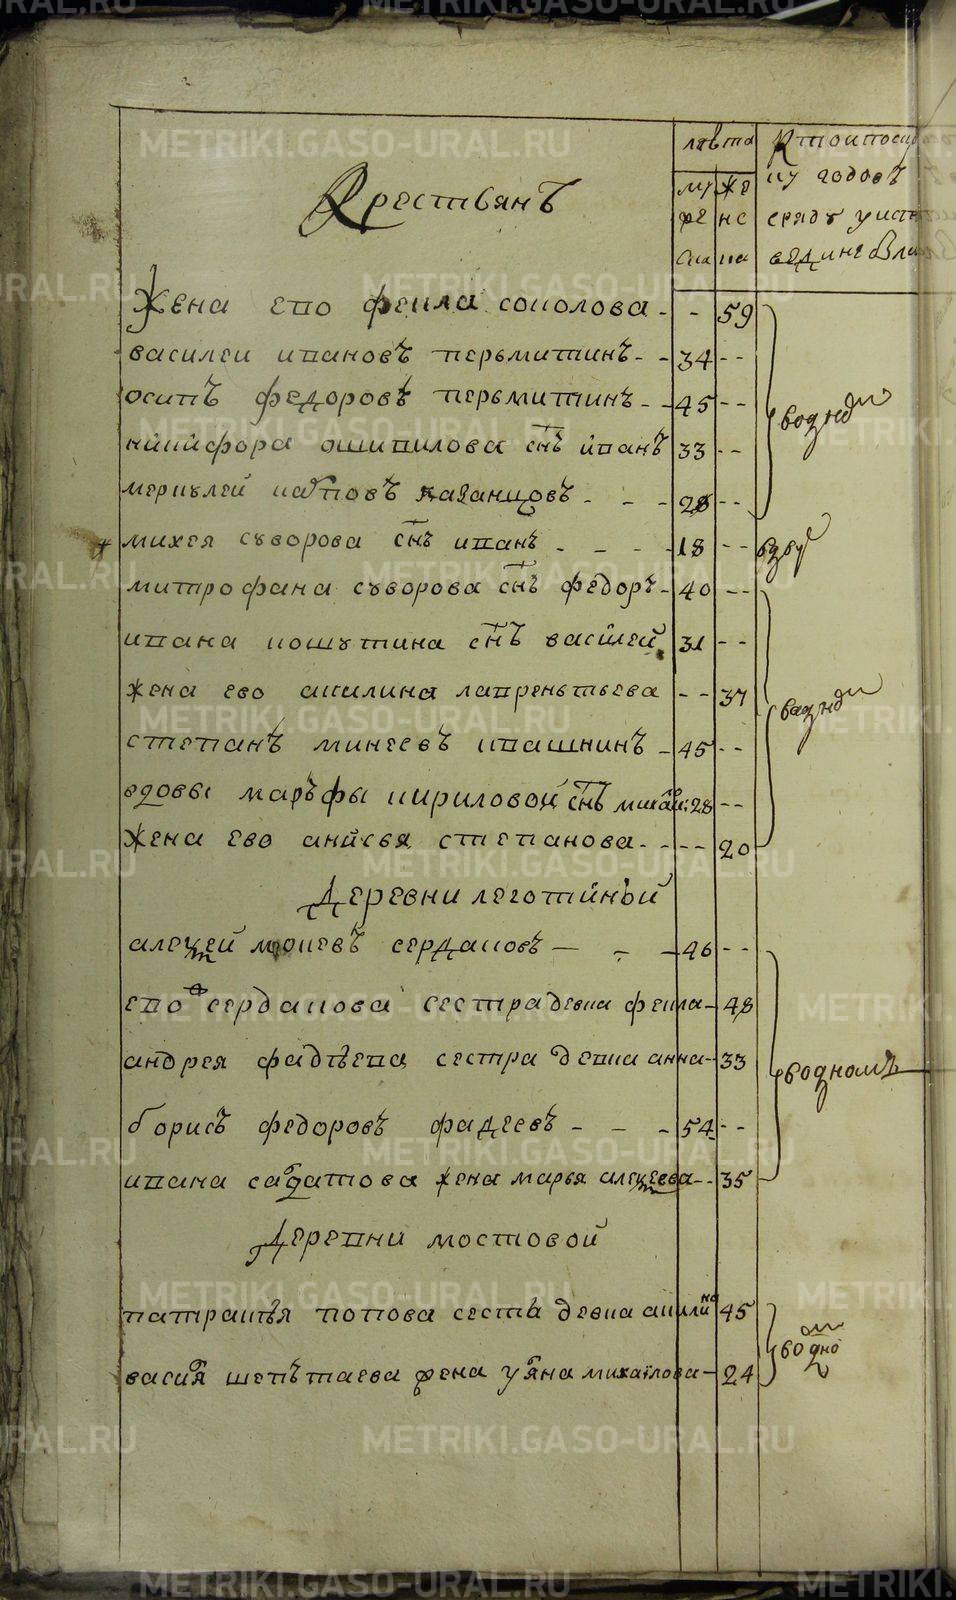 METRIKI.GASO-URAL.RU
Крестьянъ
лѣвта
му
же
ску
жѣ
нс
ка
Кто ипоск
ку годовъ
сряду уист
вединѣ
Жена ево фекла соколова - - 59
василеи ивановъ первмитинъ - - 34 - -
осипъ федоровъ первмитинъ - - 45 - -
никифора ошивилова снъ иванъ 33 - -
меркулей карповъ казанцовъ - - - 28 - -
водн
михея суворова снъ иванъ - - - - 18 - -
вдву
митрофана суворова снъ федоръ - 40 - -
ивана кошутина снъ василей 31 - -
жена ево акилина лаврентьева - - 37
степанъ минеевъ ивашнинъ - 45 - -
вдовы марѳы кириловой снъ михаи: 28 - -
жена ево анисья степанова - - - - 20
водн
Деревни леготиной
алеѯей мокіевъ сердаковъ - - - 46 - -
ево сердакова сестра девка фекла - 48
андрея фадѣева сестра девка анна - 33
борисъ федоровъ фадеевъ - - - 54 - -
ивана садатова жена марья алеѯеева - - 35
водномъ
Деревни мостовой
патракѣя попова сеста девка акилина 45
васия шепѣтаева жена уяна михаилова - 24
водно